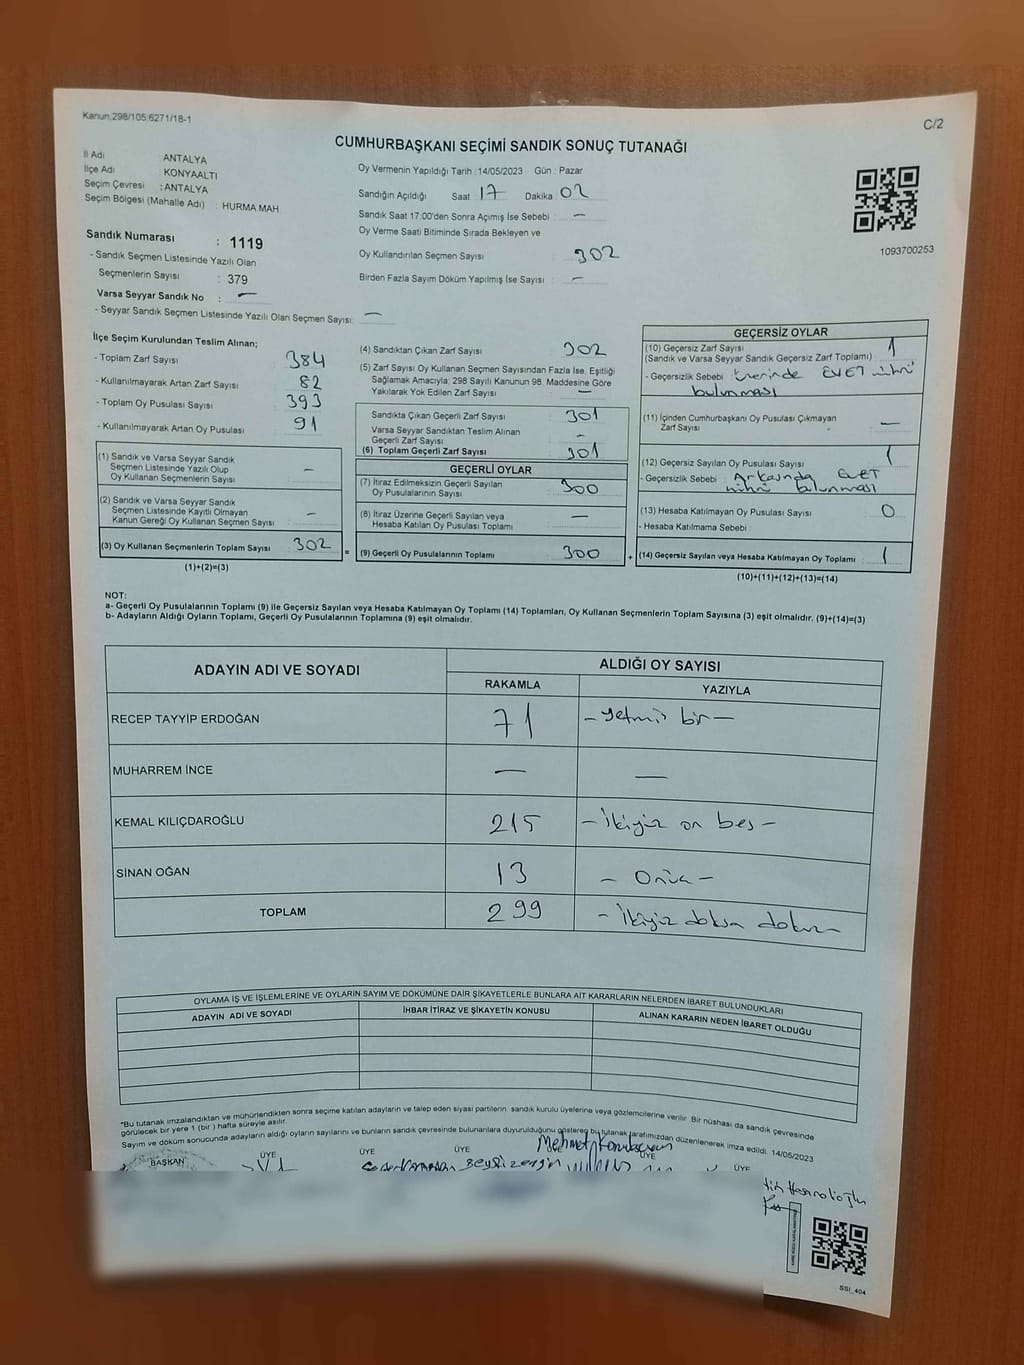 Kanun:298/105;6271/18-1
C/2
CUMHURBAŞKANI SEÇİMİ SANDIK SONUÇ TUTANAĞI
İl Adı ANTALYA
İlçe Adı KONYAALTI
Seçim Çevresi : ANTALYA
Seçim Bölgesi (Mahalle Adı) : HURMA MAH
Sandık Numarası : 1119
- Sandık Seçmen Listesinde Yazılı Olan
Seçmenlerin Sayısı : 379
Varsa Seyyar Sandık No : —
- Seyyar Sandık Seçmen Listesinde Yazılı Olan Seçmen Sayısı: —
Oy Vermenin Yapıldığı Tarih : 14/05/2023 Gün : Pazar
Sandığın Açıldığı Saat 17 Dakika 02
Sandık Saat 17:00'den Sonra Açımış İse Sebebi : —
Oy Verme Saati Bitiminde Sırada Bekleyen ve
Oy Kullandırılan Seçmen Sayısı : 302
Birden Fazla Sayım Döküm Yapılmış İse Sayısı : —
1093700253
İlçe Seçim Kurulundan Teslim Alınan;
- Toplam Zarf Sayısı 384
- Kullanılmayarak Artan Zarf Sayısı 82
- Toplam Oy Pusulası Sayısı 393
- Kullanılmayarak Artan Oy Pusulası 91
(1) Sandık ve Varsa Seyyar Sandık
Seçmen Listesinde Yazılı Olup
Oy Kullanan Seçmenlerin Sayısı —
(2) Sandık ve Varsa Seyyar Sandık
Seçmen Listesinde Kayıtlı Olmayan
Kanun Gereği Oy Kullanan Seçmen Sayısı —
(3) Oy Kullanan Seçmenlerin Toplam Sayısı 302
(1)+(2)=(3)
(4) Sandıktan Çıkan Zarf Sayısı 302
(5) Zarf Sayısı Oy Kullanan Seçmen Sayısından Fazla İse, Eşitliği
Sağlamak Amacıyla; 298 Sayılı Kanunun 98. Maddesine Göre
Yakılarak Yok Edilen Zarf Sayısı —
Sandıkta Çıkan Geçerli Zarf Sayısı 301
Varsa Seyyar Sandıktan Teslim Alınan
Geçerli Zarf Sayısı —
(6) Toplam Geçerli Zarf Sayısı 301
GEÇERLİ OYLAR
(7) İtiraz Edilmeksizin Geçerli Sayılan
Oy Pusulalarının Sayısı 300
(8) İtiraz Üzerine Geçerli Sayılan veya
Hesaba Katılan Oy Pusulası Toplamı —
= (9) Geçerli Oy Pusulalarının Toplamı 300 +
GEÇERSİZ OYLAR
(10) Geçersiz Zarf Sayısı 1
(Sandık ve Varsa Seyyar Sandık Geçersiz Zarf Toplamı)
- Geçersizlik Sebebi : üzerinde EVET mührü
bulunması
(11) İçinden Cumhurbaşkanı Oy Pusulası Çıkmayan
Zarf Sayısı —
(12) Geçersiz Sayılan Oy Pusulası Sayısı 1
- Geçersizlik Sebebi : Arkasında EVET
mührü bulunması
(13) Hesaba Katılmayan Oy Pusulası Sayısı 0
- Hesaba Katılmama Sebebi :
(14) Geçersiz Sayılan veya Hesaba Katılmayan Oy Toplamı 1
(10)+(11)+(12)+(13)=(14)
NOT:
a- Geçerli Oy Pusulalarının Toplamı (9) ile Geçersiz Sayılan veya Hesaba Katılmayan Oy Toplamı (14) Toplamları, Oy Kullanan Seçmenlerin Toplam Sayısına (3) eşit olmalıdır. (9)+(14)=(3)
b- Adayların Aldığı Oyların Toplamı, Geçerli Oy Pusulalarının Toplamına (9) eşit olmalıdır.
ADAYIN ADI VE SOYADI ALDIĞI OY SAYISI
RAKAMLA YAZIYLA
RECEP TAYYİP ERDOĞAN 71 – yetmiş bir –
MUHARREM İNCE — —
KEMAL KILIÇDAROĞLU 215 – ikiyüz on beş –
SİNAN OĞAN 13 – Onüç –
TOPLAM 299 – ikiyüz doksan dokuz –
OYLAMA İŞ VE İŞLEMLERİNE VE OYLARIN SAYIM VE DÖKÜMÜNE DAİR ŞİKAYETLERLE BUNLARA AİT KARARLARIN NELERDEN İBARET BULUNDUKLARI
ADAYIN ADI VE SOYADI İHBAR İTİRAZ VE ŞİKAYETİN KONUSU ALINAN KARARIN NEDEN İBARET OLDUĞU
"Bu tutanak imzalandıktan ve mühürlendikten sonra seçime katılan adayların ve talep eden siyasi partilerin sandık kurulu üyelerine veya gözlemcilerine verilir. Bir nüshası da sandık çevresinde
görülecek bir yere 1 (bir) hafta süreyle asılır.
Sayım ve döküm sonucunda adayların aldığı oyların sayılarını ve bunların sandık çevresinde bulunanlara duyurulduğunu gösteren bu tutanak tarafımızdan düzenlenerek imza edildi. 14/05/2023
BAŞKAN ÜYE ÜYE ÜYE ÜYE ÜYE
SSİ_404